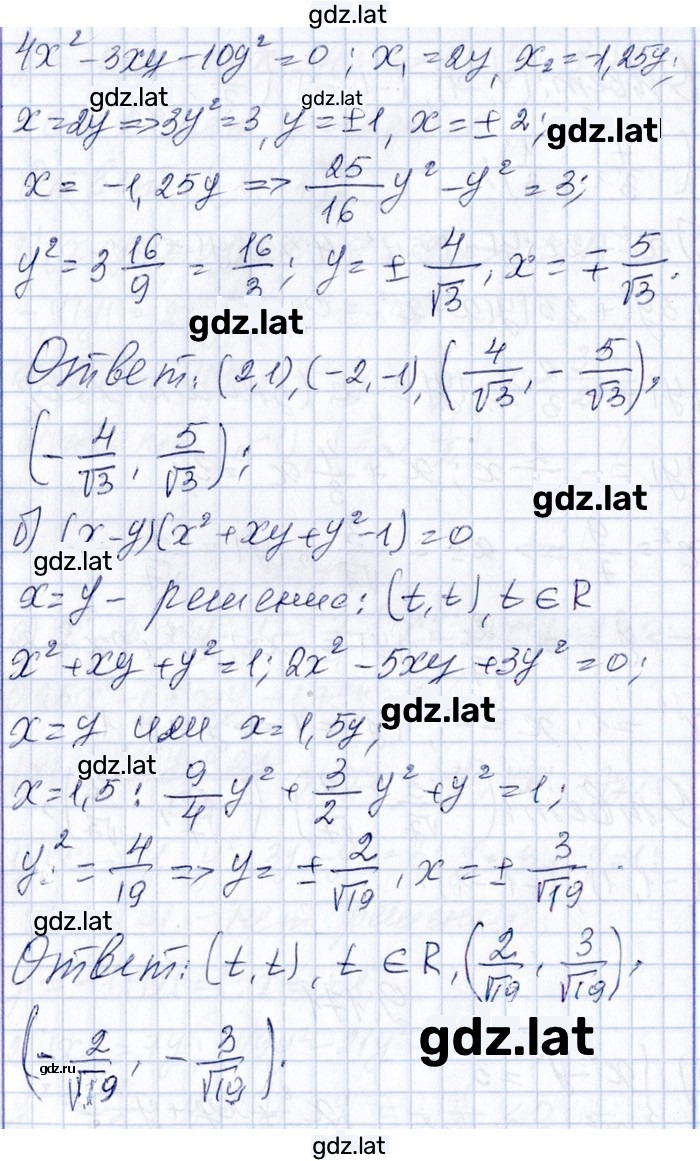 gdz.lat
4x² - 3xy - 10y² = 0; x₁ = 2y, x₂ = -1,25y;
gdz.lat gdz.lat
x = 2y => 3y² = 3, y = ±1, x = ±2;
gdz.lat
x = -1,25y => 25/16 y² - y² = 3;
y² = 3 16/9 = 16/3; y = ± 4/√3, x = ∓ 5/√3.
gdz.lat
Ответ: (2,1), (-2,-1), (4/√3, -5/√3),
(-4/√3, 5/√3);
gdz.lat
б) (x-y)(x² + xy + y² - 1) = 0
gdz.lat
x = y - решение: (t, t), t ∈ R
x² + xy + y² = 1; 2x² - 5xy + 3y² = 0;
gdz.lat
x = y или x = 1,5y;
gdz.lat
x = 1,5: 9/4 y² + 3/2 y² + y² = 1;
y² = 4/19 => y = ± 2/√19, x = ± 3/√19.
gdz.lat
Ответ: (t, t), t ∈ R, (2/√19, 3/√19),
(-2/√19, -3/√19).
gdz.lat
gdz.ru
gdz.lat